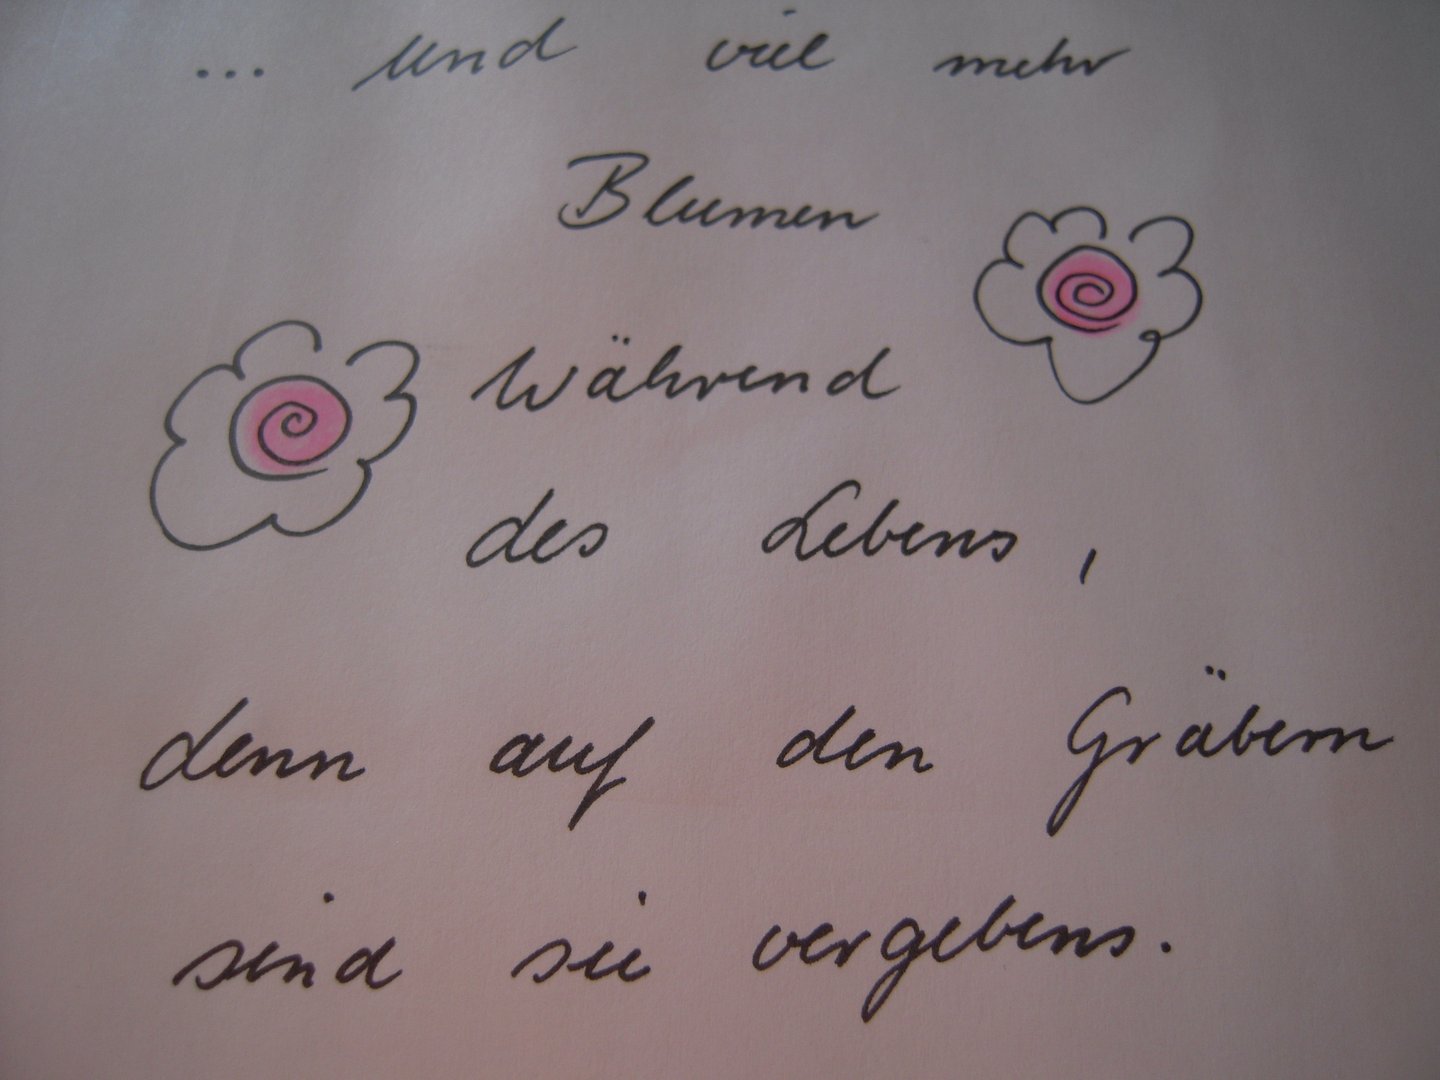 ... und viel mehr
Blumen
während
des Lebens,
denn auf den Gräbern
sind sie vergebens.